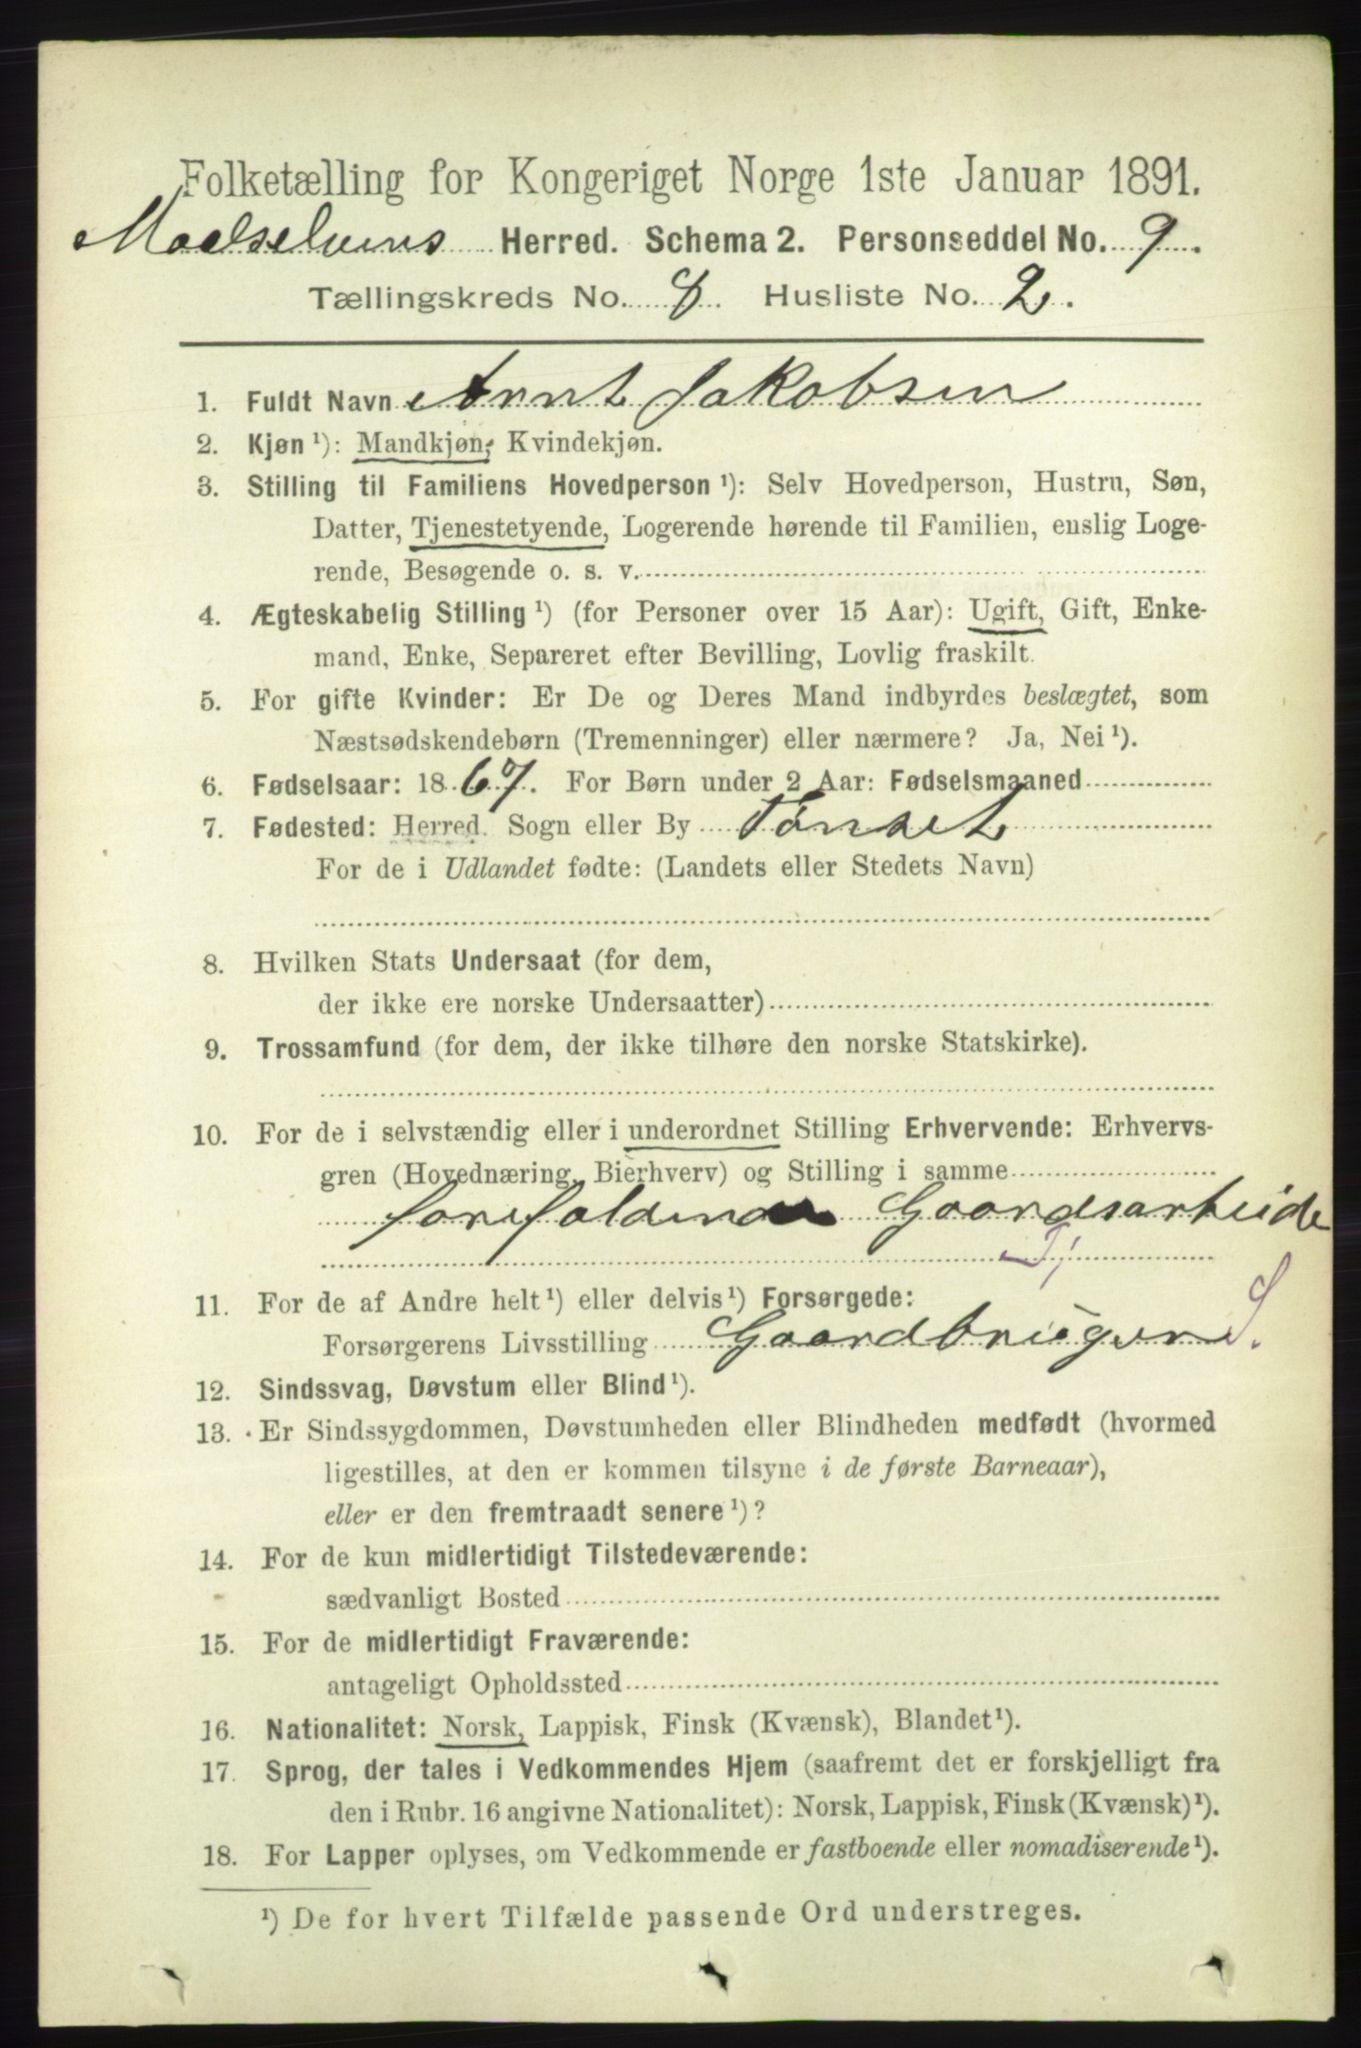 Folketælling for Kongeriget Norge 1ste Januar 1891.
Maelselvens Herred. Schema 2. Personseddel No. 9.
Tællingskreds No. 8. Husliste No. 2.
1. Fuldt Navn Arnt Jakobsen
2. Kjøn ¹): Mandkjøn, Kvindekjøn.
3. Stilling til Familiens Hovedperson ¹): Selv Hovedperson, Hustru, Søn,
Datter, Tjenestetyende, Logerende hørende til Familien, enslig Loge-
rende, Besøgende o. s. v.
4. Ægteskabelig Stilling ¹) (for Personer over 15 Aar): Ugift, Gift, Enke-
mand, Enke, Separeret efter Bevilling, Lovlig fraskilt.
5. For gifte Kvinder: Er De og Deres Mand indbyrdes beslægtet, som
Næstsødskendebørn (Tremenninger) eller nærmere? Ja, Nei ¹).
6. Fødselsaar: 1867. For Børn under 2 Aar: Fødselsmaaned
7. Fødested: Herred. Sogn eller By Tønset
For de i Udlandet fødte: (Landets eller Stedets Navn)
8. Hvilken Stats Undersaat (for dem,
der ikke ere norske Undersaatter)
9. Trossamfund (for dem, der ikke tilhøre den norske Statskirke).
10. For de i selvstændig eller i underordnet Stilling Erhvervende: Erhvervs-
gren (Hovednæring, Bierhverv) og Stilling i samme
forefaldende Gaardsarbeide
Tj
11. For de af Andre helt ¹) eller delvis ¹) Forsørgede:
Forsørgerens Livsstilling Gaardbruger S.
12. Sindssvag, Døvstum eller Blind ¹).
13. Er Sindssygdommen, Døvstumheden eller Blindheden medfødt (hvormed
ligestilles, at den er kommen tilsyne i de første Barneaar),
eller er den fremtraadt senere ¹)?
14. For de kun midlertidigt Tilstedeværende:
sædvanligt Bosted
15. For de midlertidigt Fraværende:
antageligt Opholdssted
16. Nationalitet: Norsk, Lappisk, Finsk (Kvænsk), Blandet ¹).
17. Sprog, der tales i Vedkommendes Hjem (saafremt det er forskjelligt fra
den i Rubr. 16 angivne Nationalitet): Norsk, Lappisk, Finsk (Kvænsk) ¹).
18. For Lapper oplyses, om Vedkommende er fastboende eller nomadiserende ¹).
¹) De for hvert Tilfælde passende Ord understreges.